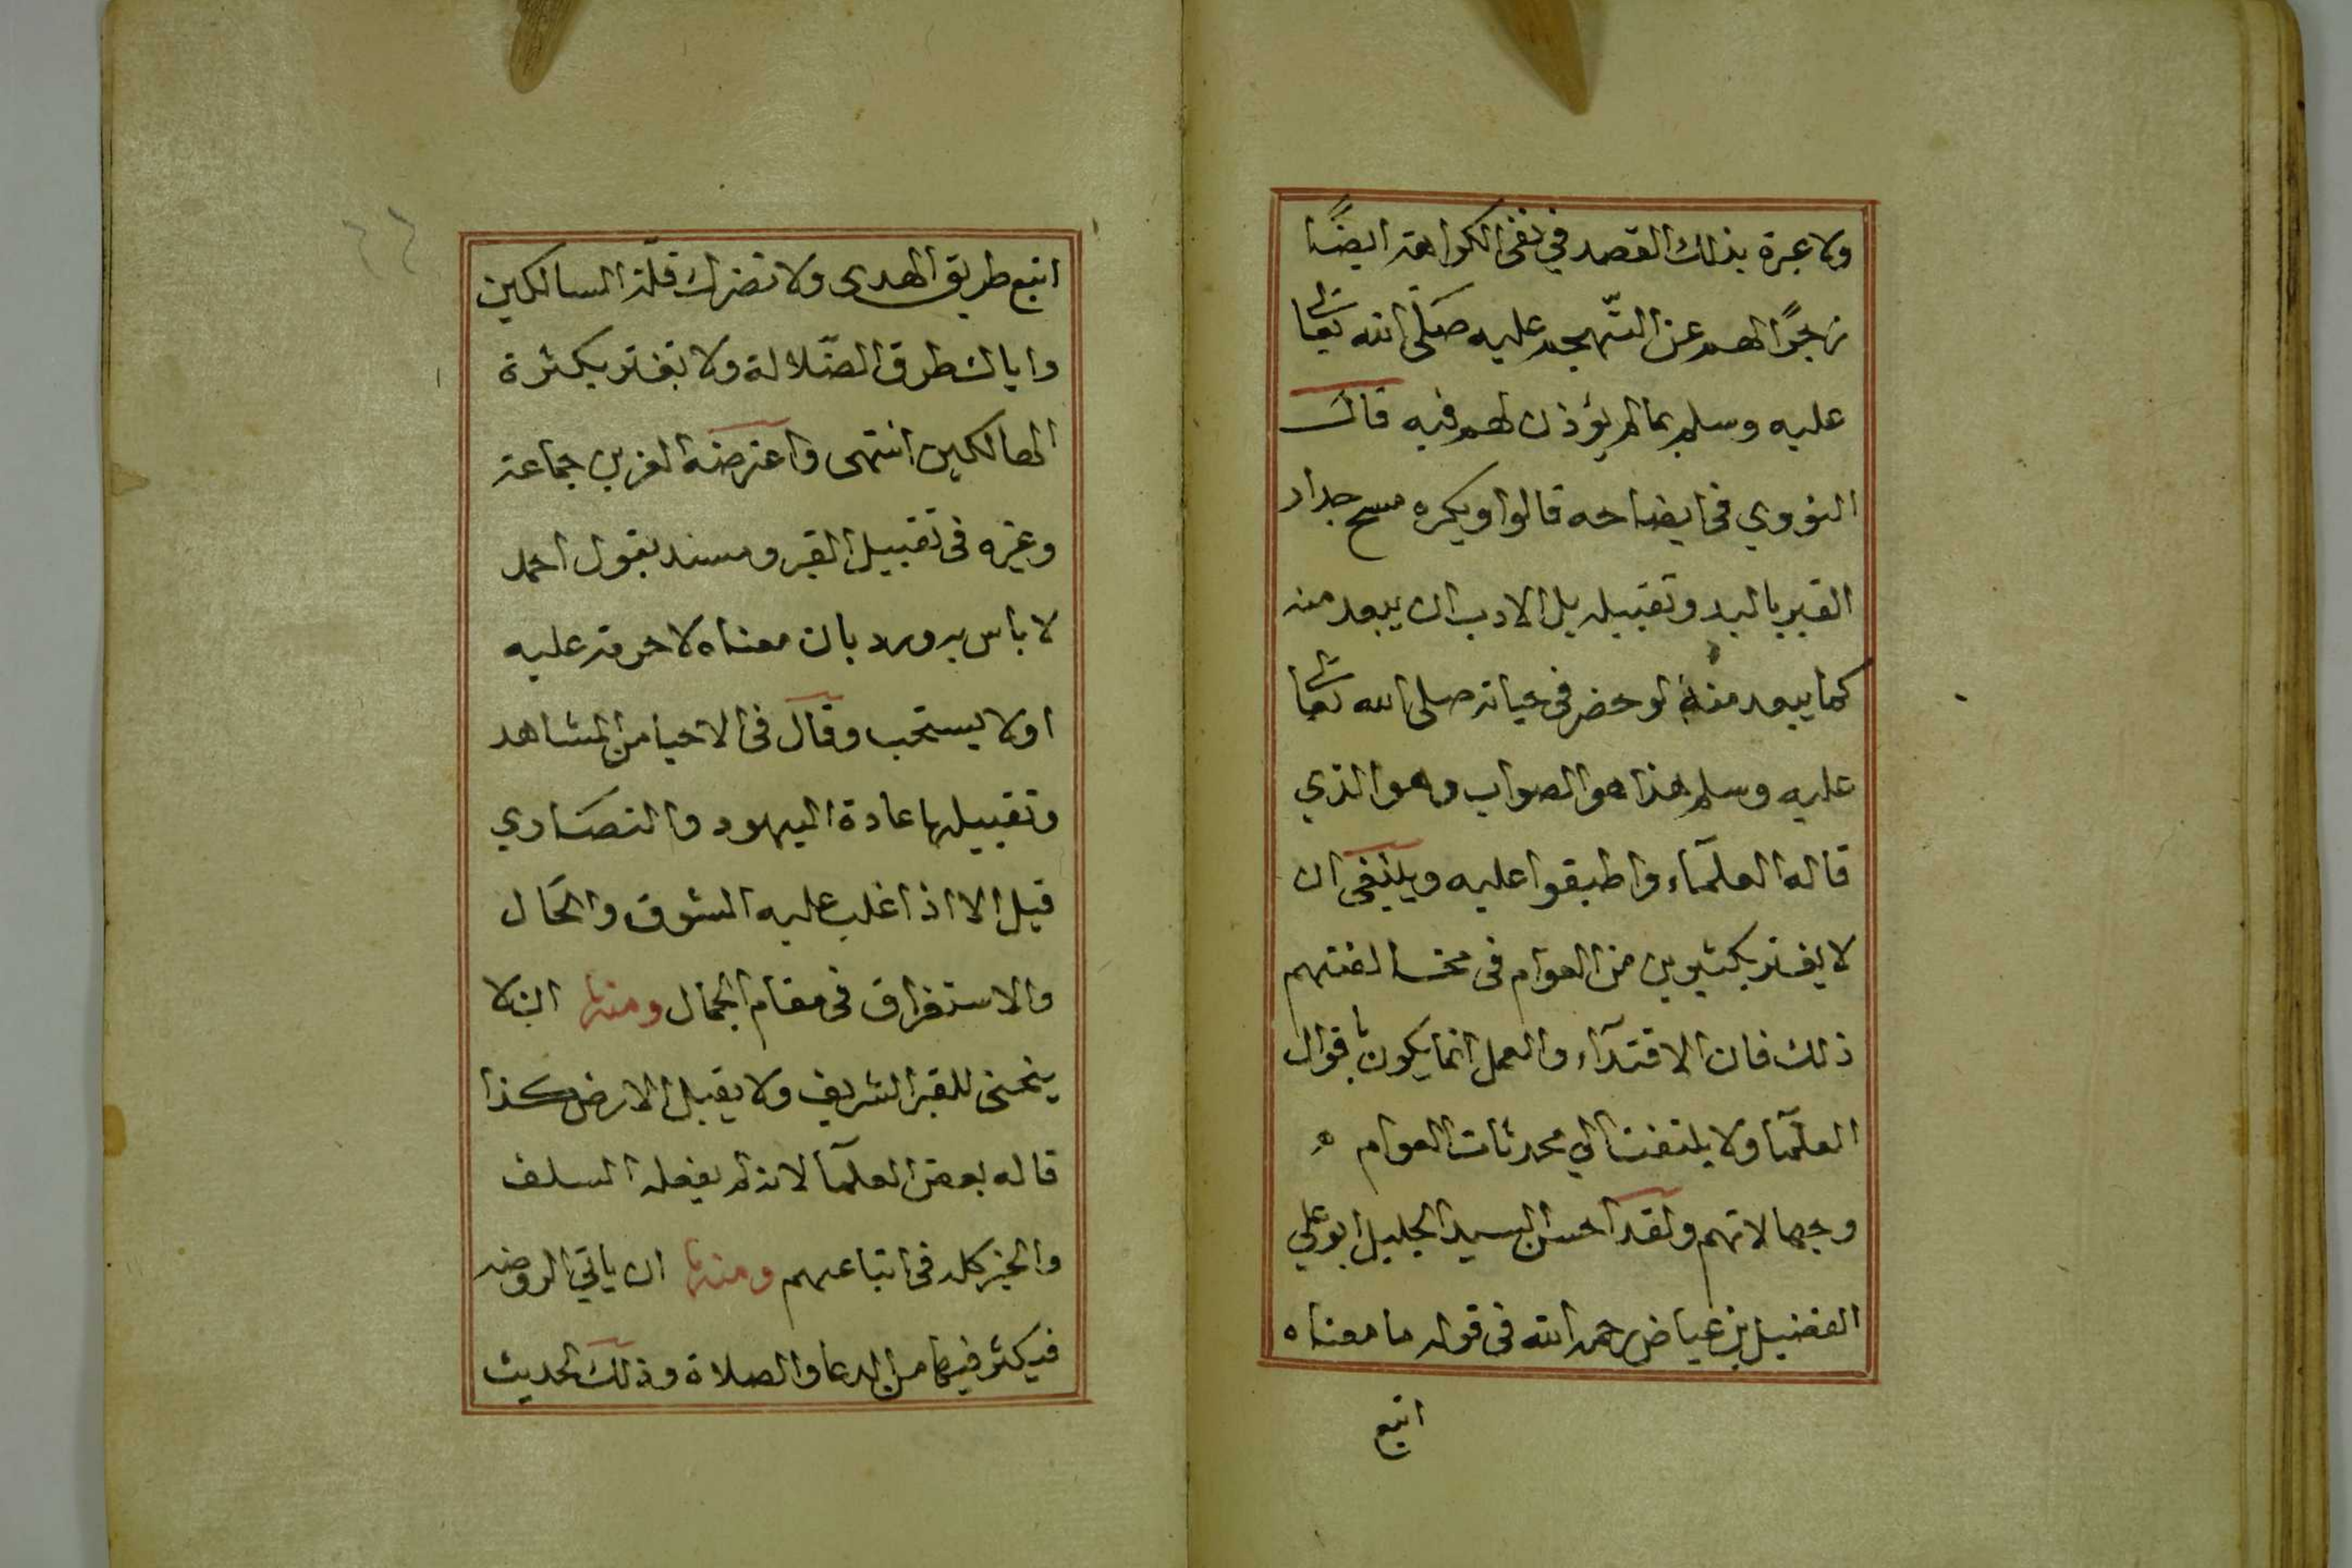 ولا عبرة بذلك القصد في نفى الكراهة ايضًا
زجرًا لهم عن التهجم عليه صلى الله تعالى
عليه وسلم بما لم يؤذن لهم فيه قال
النووي في ايضاحه قالوا ويكره مسح جدار
القبر باليد وتقبيله بل الادب ان يبعد منه
كما يبعد منه لو حضر في حياته صلى الله تعالى
عليه وسلم هذا هو الصواب وهو الذي
قاله العلمآء واطبقوا عليه وينبغي ان
لا يغتر بكثيرين من العوام في مخالفتهم
ذلك فان الاقتدآء والعمل انما يكون باقوال
العلمآ ولا يلتفت الي محدثات العوام
وجهالاتهم ولقد احسن السيد الجليل ابو علي
الفضيل بن عياض رحمه الله في قوله ما معناه
اتبع
اتبع طريق الهدى ولا تضرك قلة السالكين
واياك طرق الضلالة ولا تغتر بكثرة
الهالكين انتهى واعترضه العز بن جماعة
وغيره في تقبيل القبر ومسه بقول احمد
لا باس به ورد بان معناه لا حرمة عليه
او لا يستحب وقال في الاحيا مس المشاهد
وتقبيلها عادة اليهود والنصاري
قيل الا اذا غلب عليه الشوق والحال
والاستغراق في مقام الجمال ومنها ان لا
ينحني للقبر الشريف ولا يقبل الارض كذا
قاله بعض العلمآ لانه لم يفعله السلف
والخير كله في اتباعهم ومنها ان ياتي الروضه
فيكثر فيها من الدعا والصلاة وذلك لحديث